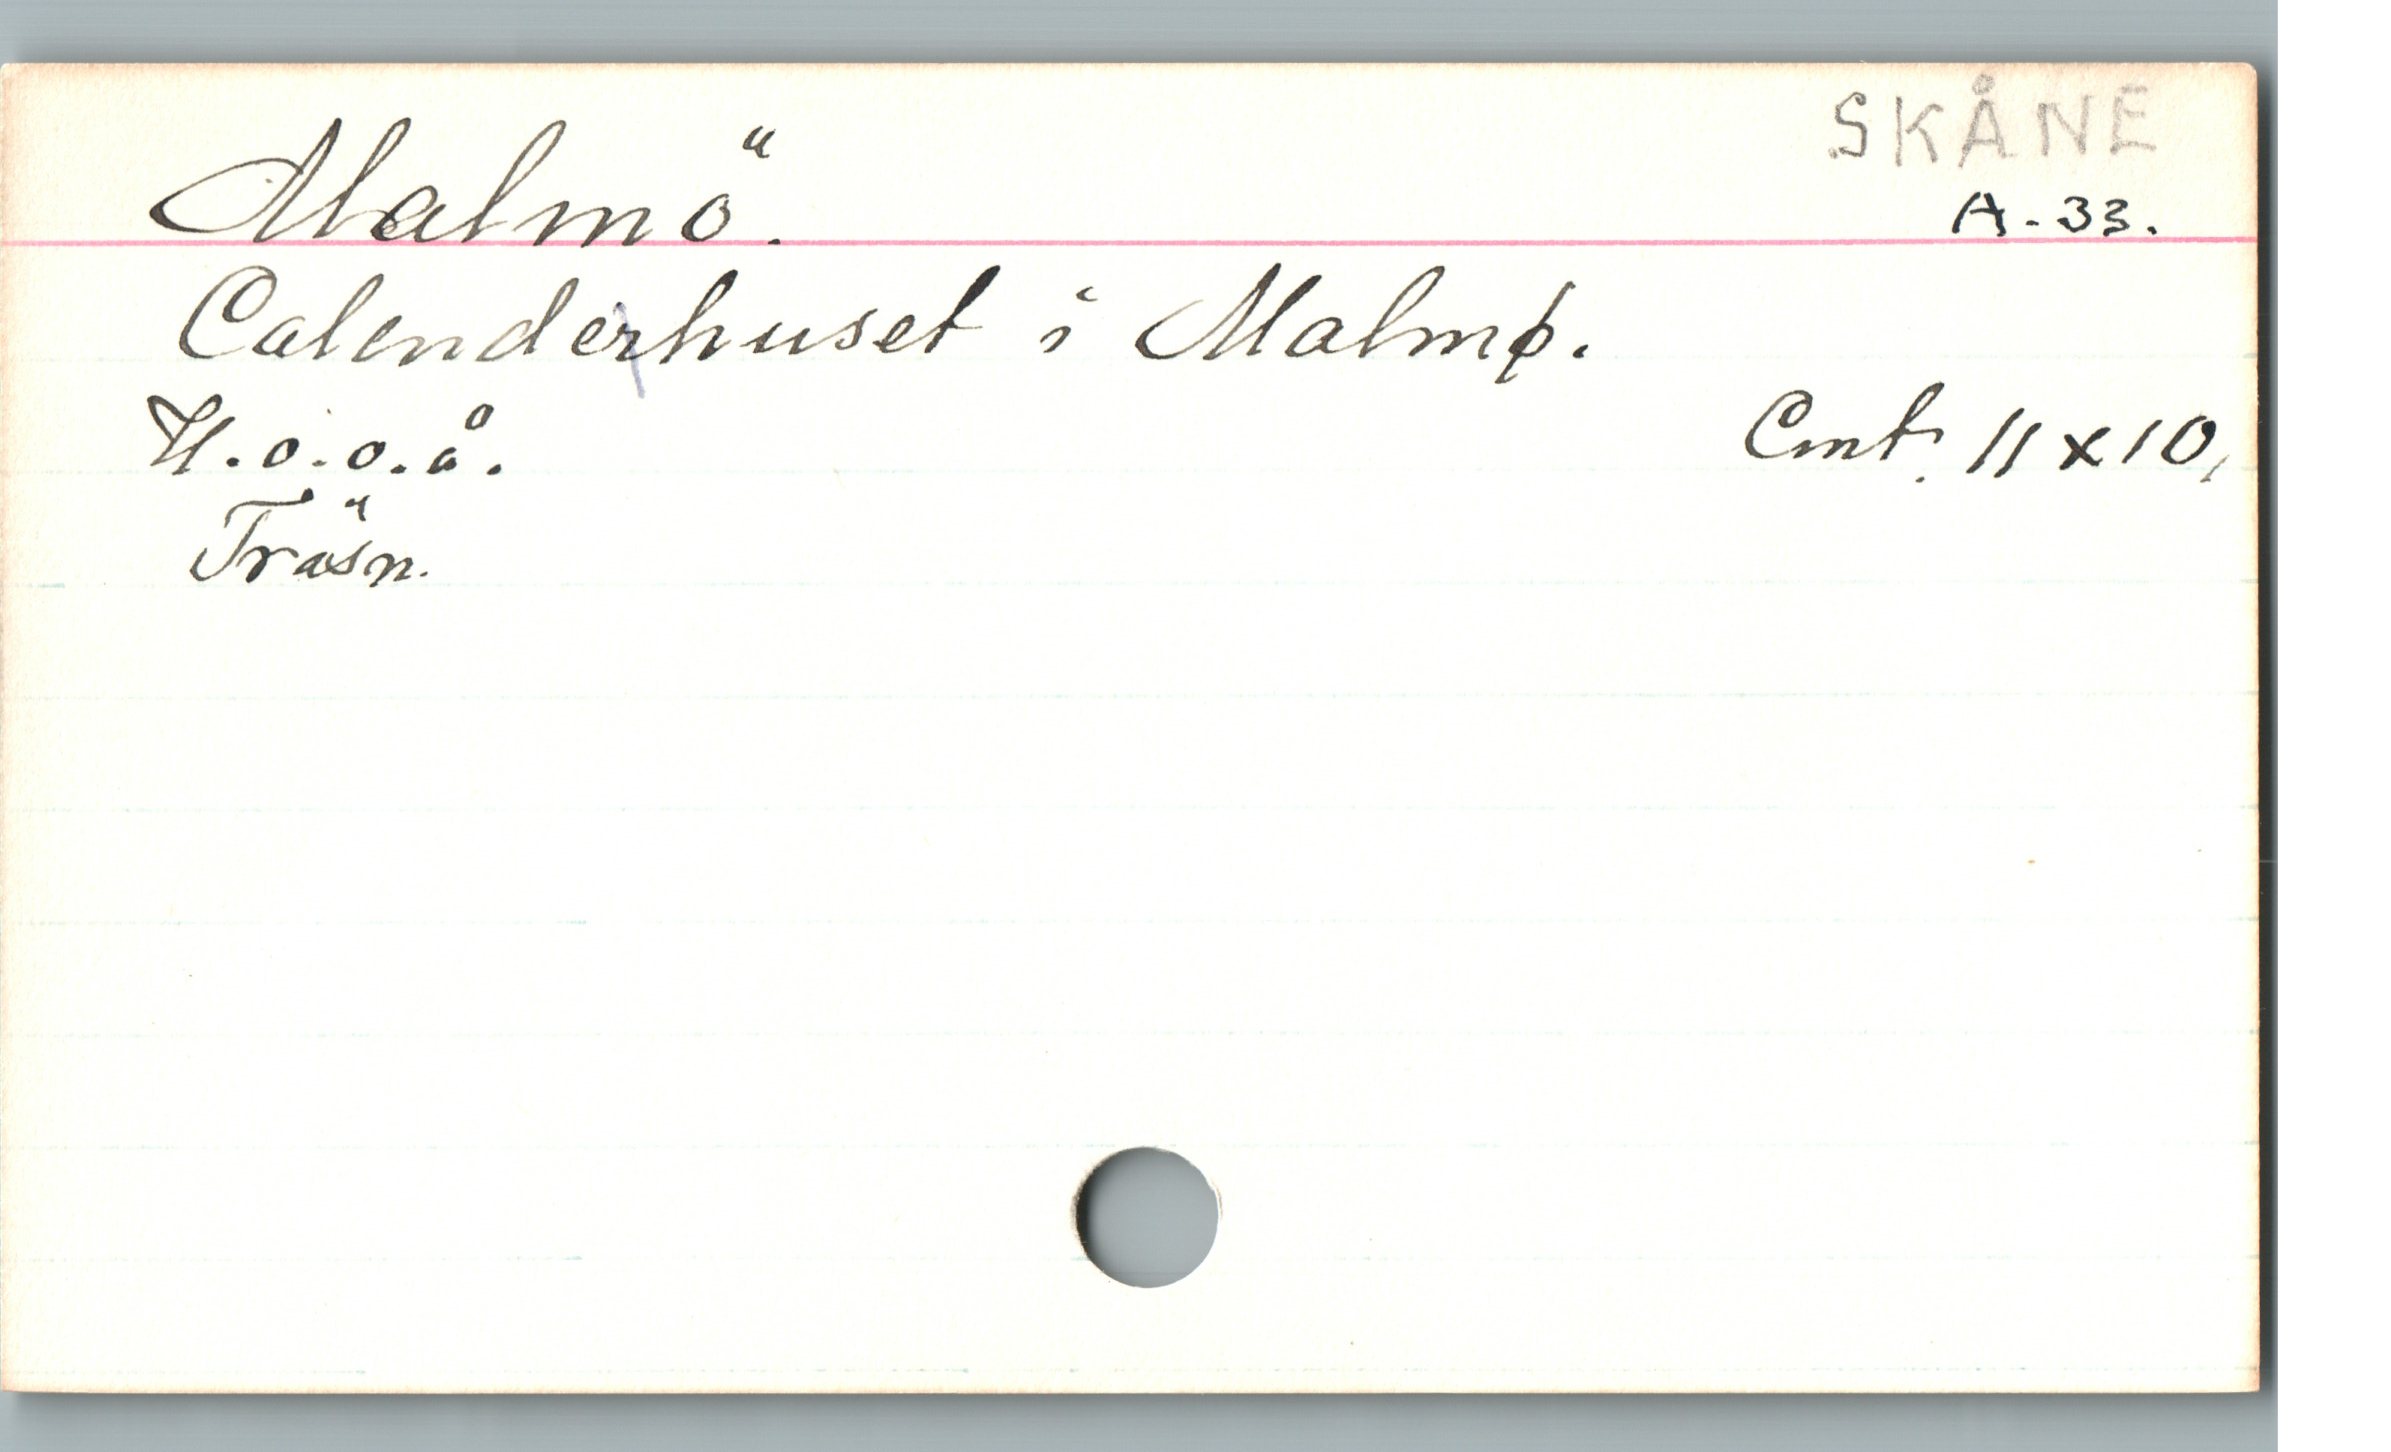 SKÅNE
Malmö.
A-33.
Calenderhuset i Malmø.
U.o.o.å.
Cmt. 11x10,
Träsn.